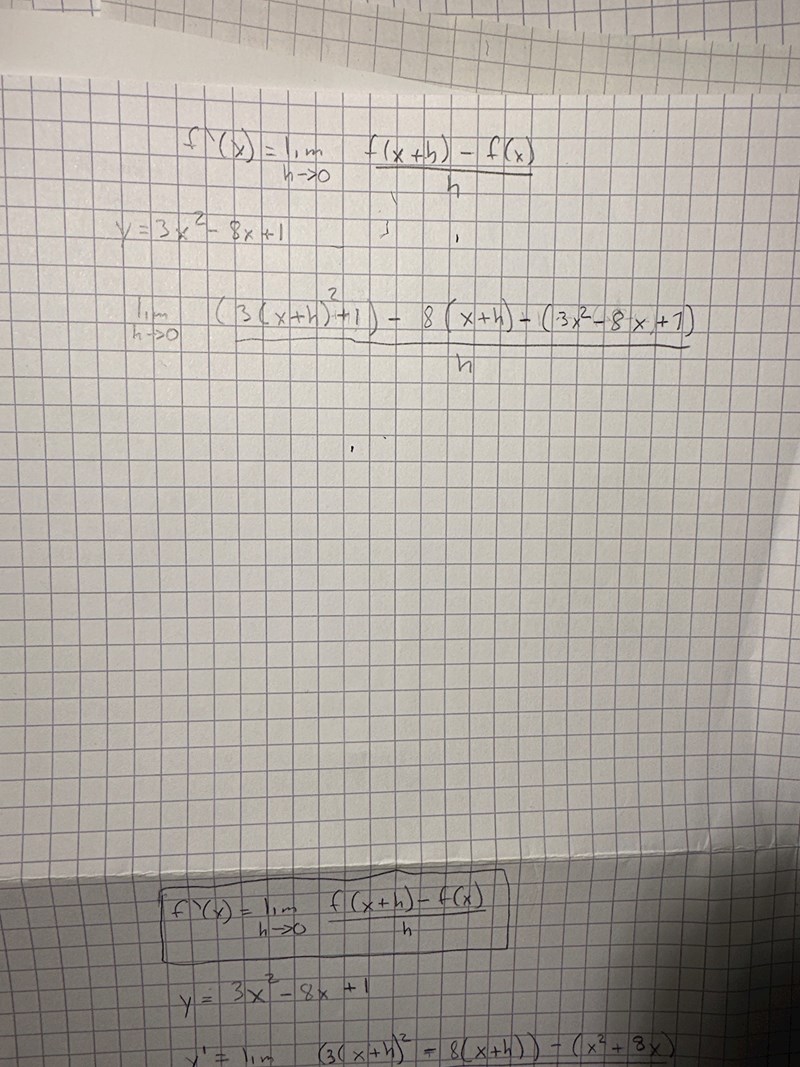 f`(x) = lim h→0 f(x+h) - f(x) / h
y = 3x² - 8x + 1
lim h→0 (3(x+h)² + 1) - 8(x+h) - (3x² - 8x + 1) / h
f`(x) = lim h→0 f(x+h) - f(x) / h
y = 3x² - 8x + 1
y' = lim (3(x+h)² - 8(x+h)) - (x² + 8x)